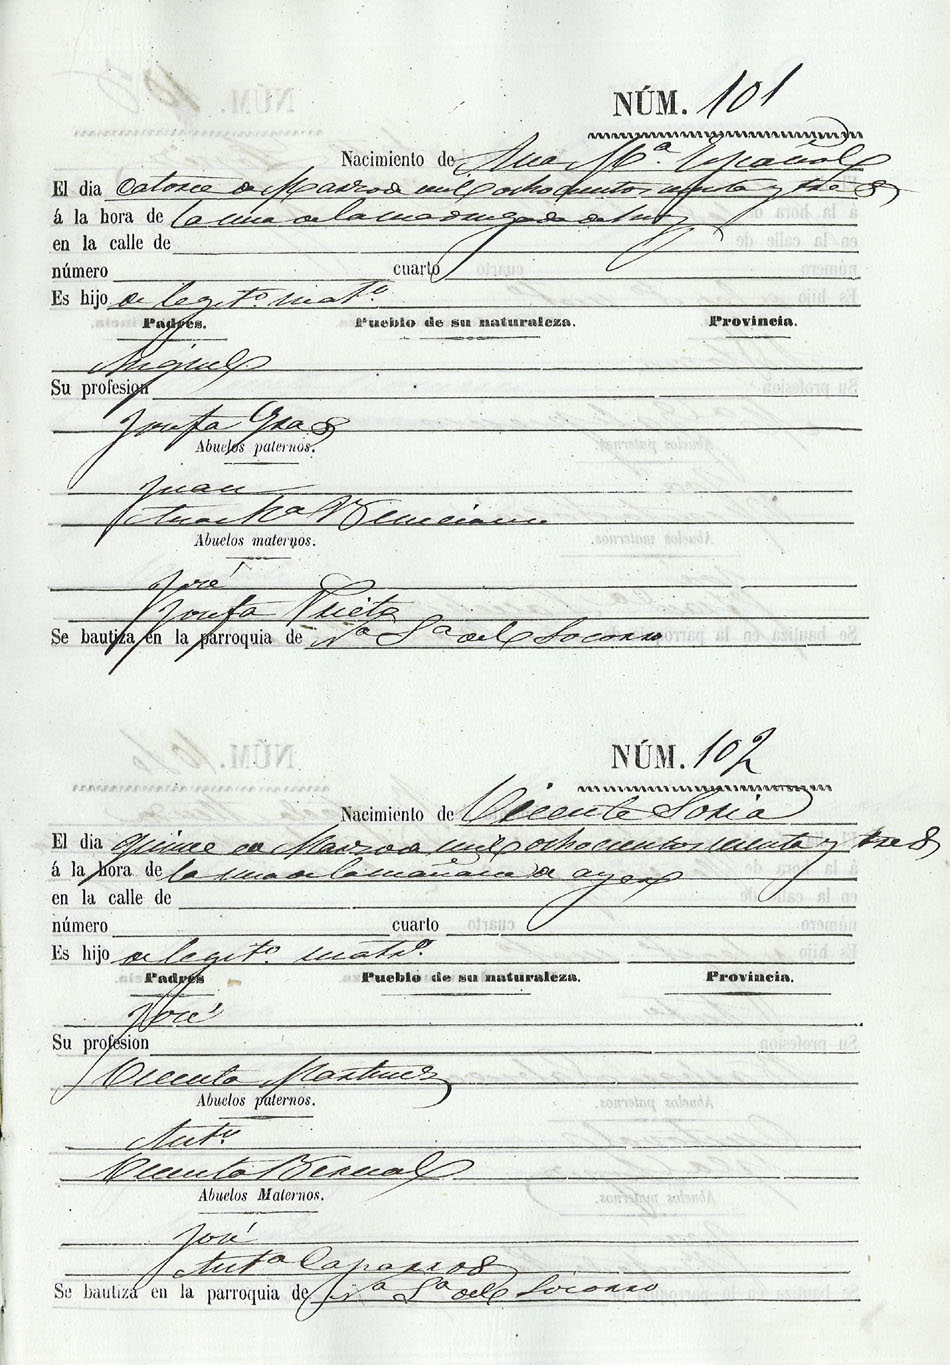 NÚM. 101
Nacimiento de Ana Mª Español
El dia catorce de Marzo de mil ochocientos noventa y tres
á la hora de la una de la madrugada de hoy
en la calle de
número cuarto
Es hijo de legitº matº
Padres. Pueblo de su naturaleza. Provincia.
Miguel
Su profesion
Josefa Gras
Abuelos paternos.
Juan
Ana Mª
Abuelos maternos.
José
Josefa Prieto
Se bautiza en la parroquia de Nª Sª del Socorro
NÚM. 102
Nacimiento de Vicente Soria
El dia quince de Marzo de mil ochocientos noventa y tres
á la hora de la una de la mañana de ayer
en la calle de
número cuarto
Es hijo de legitº matrº
Padres Pueblo de su naturaleza. Provincia.
José
Su profesion
Vicenta Martinez
Abuelos paternos.
Antº
Vicenta Bernal
Abuelos Maternos.
José
Antª Caparros
Se bautiza en la parroquia de Nª Sª del Socorro